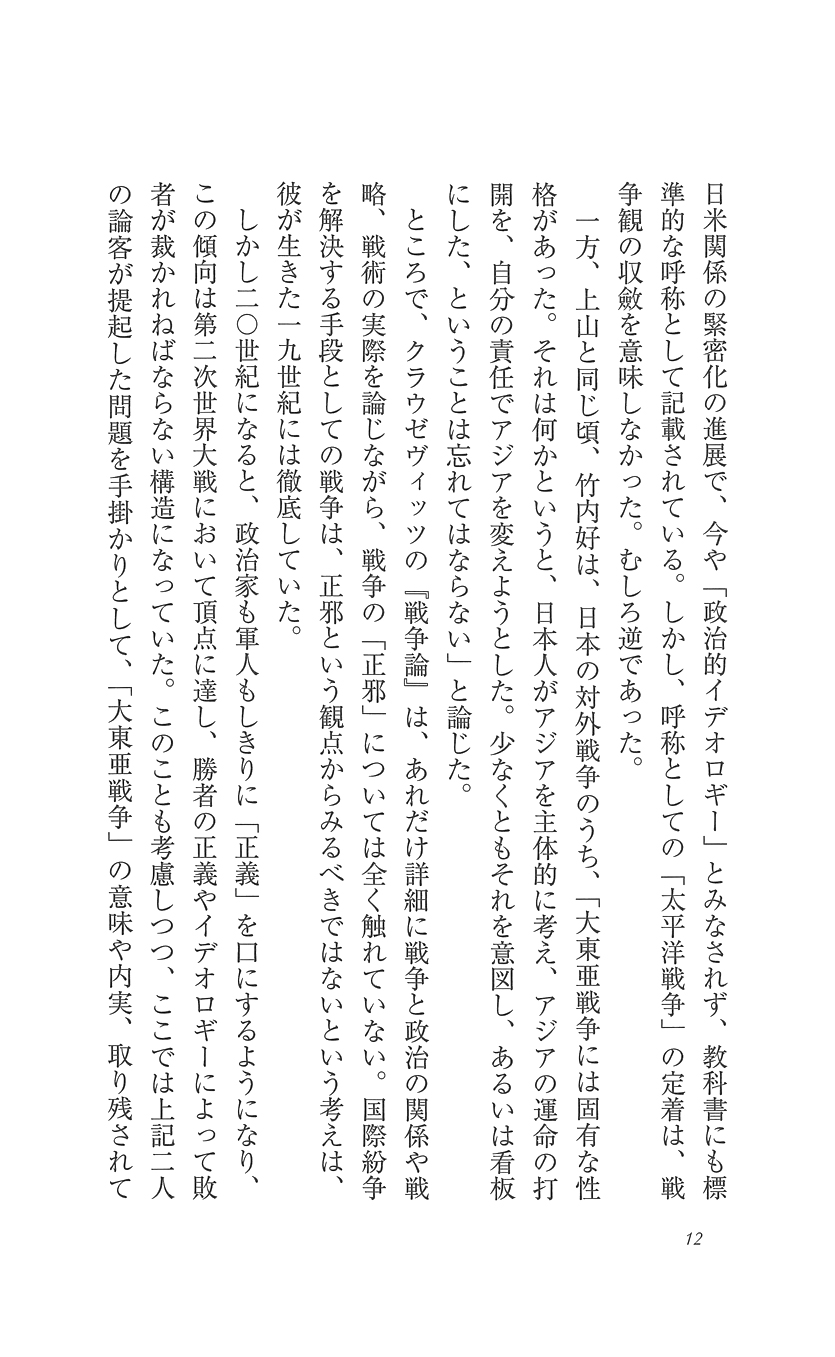 日米関係の緊密化の進展で、今や「政治的イデオロギー」とみなされず、教科書にも標
準的な呼称として記載されている。しかし、呼称としての「太平洋戦争」の定着は、戦
争観の収斂を意味しなかった。むしろ逆であった。
一方、上山と同じ頃、竹内好は、日本の対外戦争のうち、「大東亜戦争には固有な性
格があった。それは何かというと、日本人がアジアを主体的に考え、アジアの運命の打
開を、自分の責任でアジアを変えようとした。少なくともそれを意図し、あるいは看板
にした、ということは忘れてはならない」と論じた。
ところで、クラウゼヴィッツの『戦争論』は、あれだけ詳細に戦争と政治の関係や戦
略、戦術の実際を論じながら、戦争の「正邪」については全く触れていない。国際紛争
を解決する手段としての戦争は、正邪という観点からみるべきではないという考えは、
彼が生きた一九世紀には徹底していた。
しかし二〇世紀になると、政治家も軍人もしきりに「正義」を口にするようになり、
この傾向は第二次世界大戦において頂点に達し、勝者の正義やイデオロギーによって敗
者が裁かれねばならない構造になっていた。このことも考慮しつつ、ここでは上記二人
の論客が提起した問題を手掛かりとして、「大東亜戦争」の意味や内実、取り残されて
12